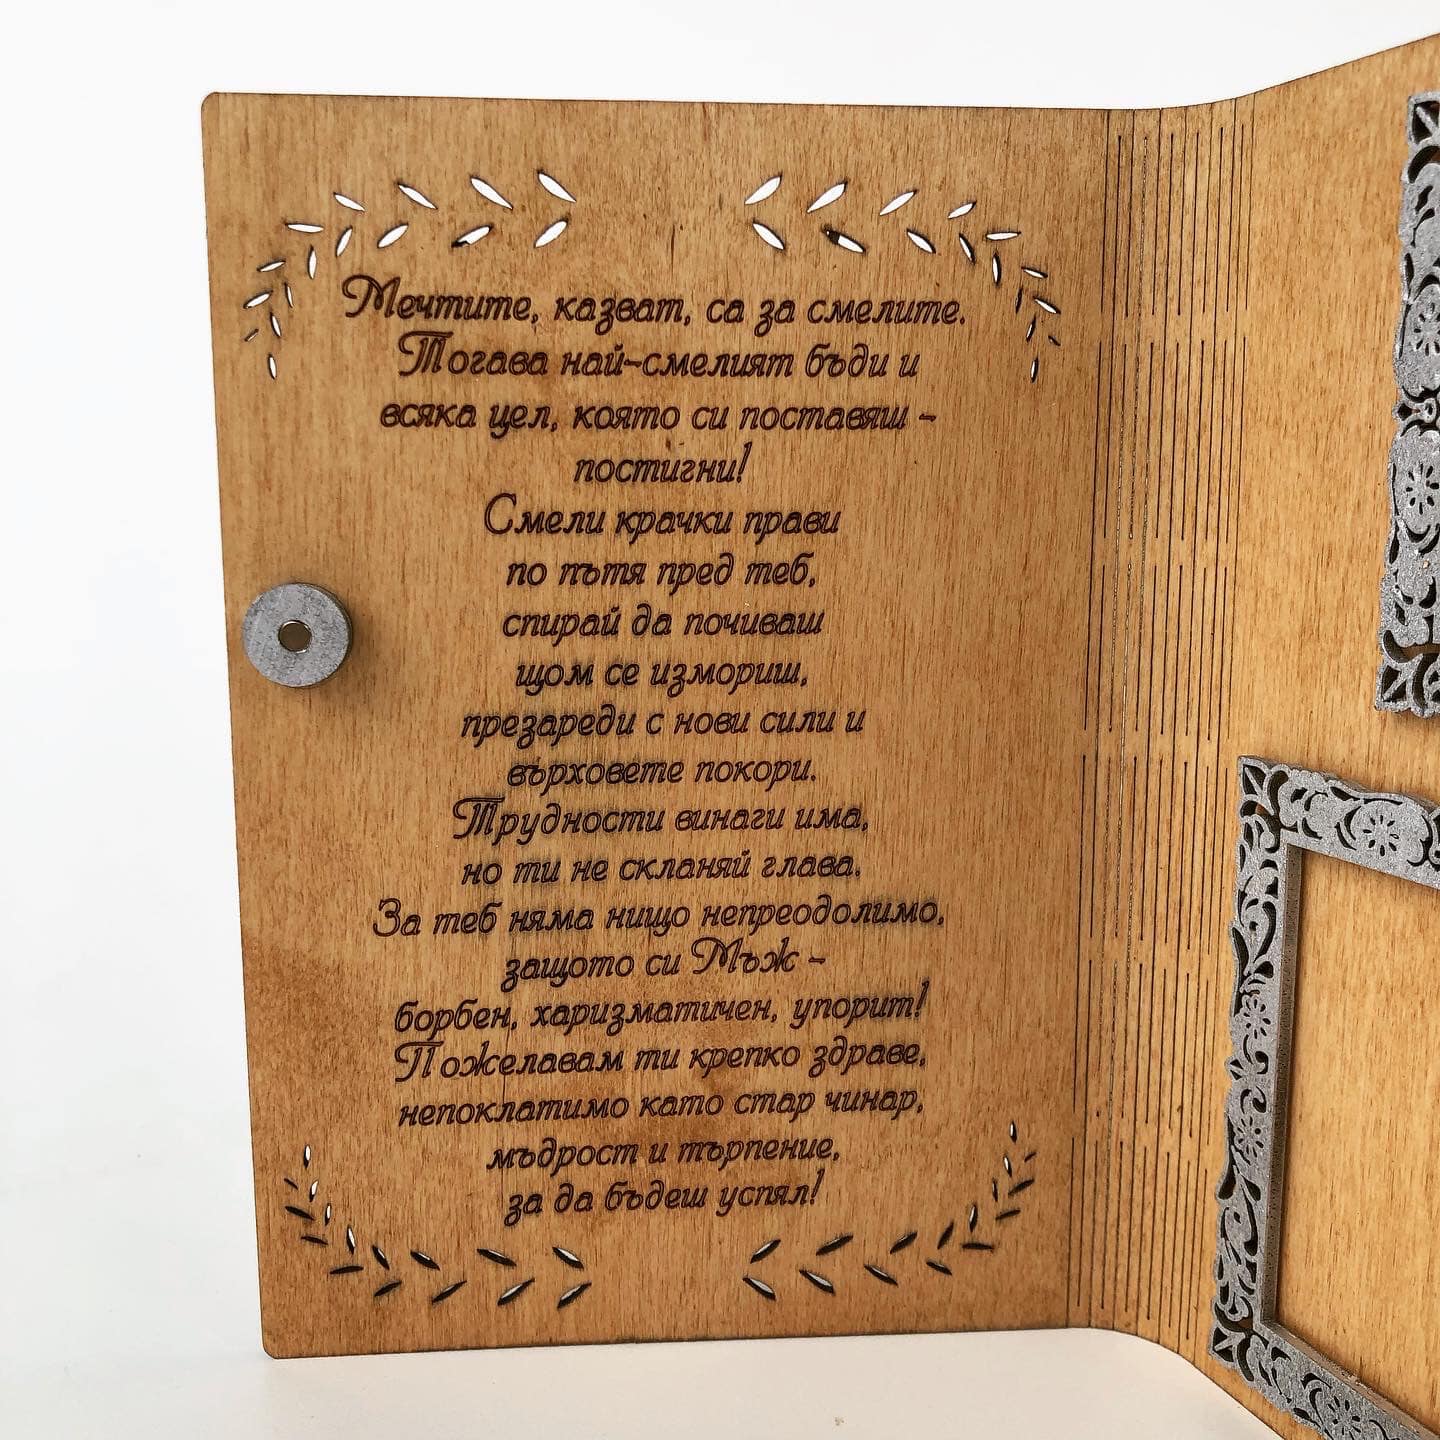 Мечтите, казват, са за смелите.
Тогава най-смелият бъди и
всяка цел, която си поставяш -
постигни!
Смели крачки прави
по пътя пред теб,
спирай да почиваш
щом се измориш,
презареди с нови сили и
върховете покори.
Трудности винаги има,
но ти не скланяй глава.
За теб няма нищо непреодолимо,
защото си Мъж -
борбен, харизматичен, упорит!
Пожелавам ти крепко здраве,
непоклатимо като стар чинар,
мъдрост и търпение,
за да бъдеш успял!